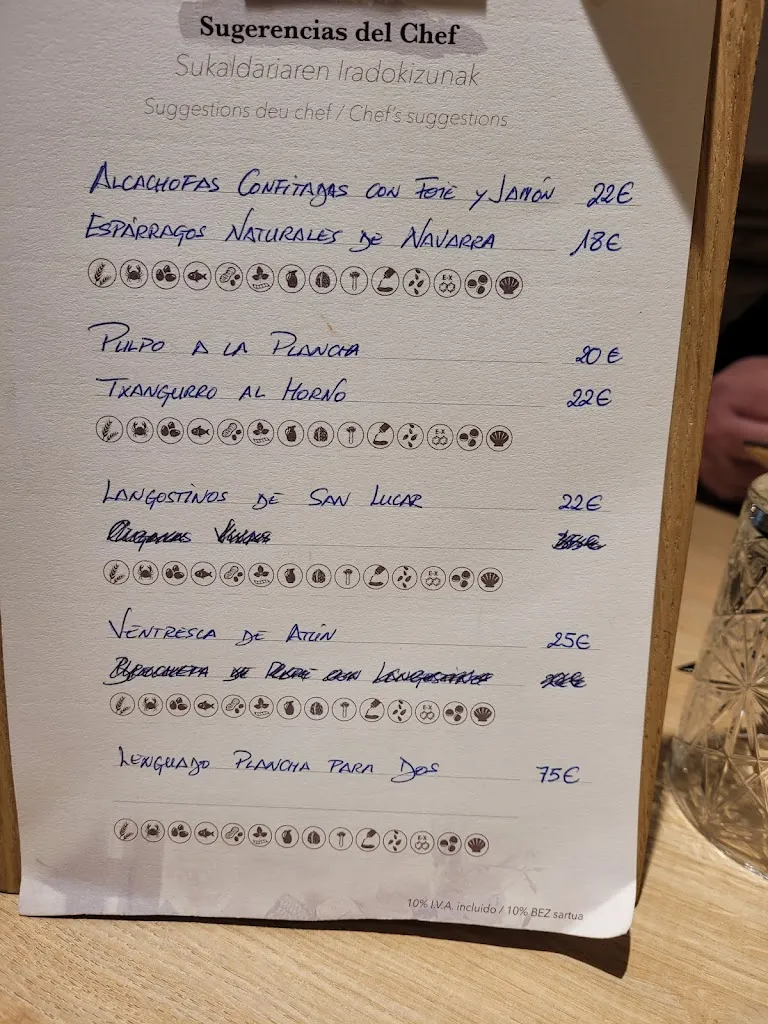 Sugerencias del Chef
Sukaldariaren Iradokizunak
Suggestions deu chef / Chef's suggestions
ALCACHOFAS CONFITADAS CON FOIE Y JAMÓN 22€
ESPÁRRAGOS NATURALES DE NAVARRA 18€
PULPO A LA PLANCHA 20€
TXANGURRO AL HORNO 22€
LANGOSTINOS DE SAN LUCAR 22€
VENTRESCA DE ATÚN 25€
LENGUADO PLANCHA PARA DOS 75€
10% I.V.A. incluido / 10% BEZ sartua